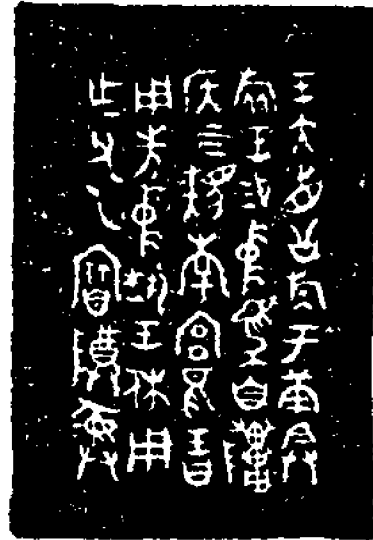 王大省公族于庚𢦚
旅王易中馬自
侯四南宮兄王曰
用先中埶王休用
乍父乙寶尊彝